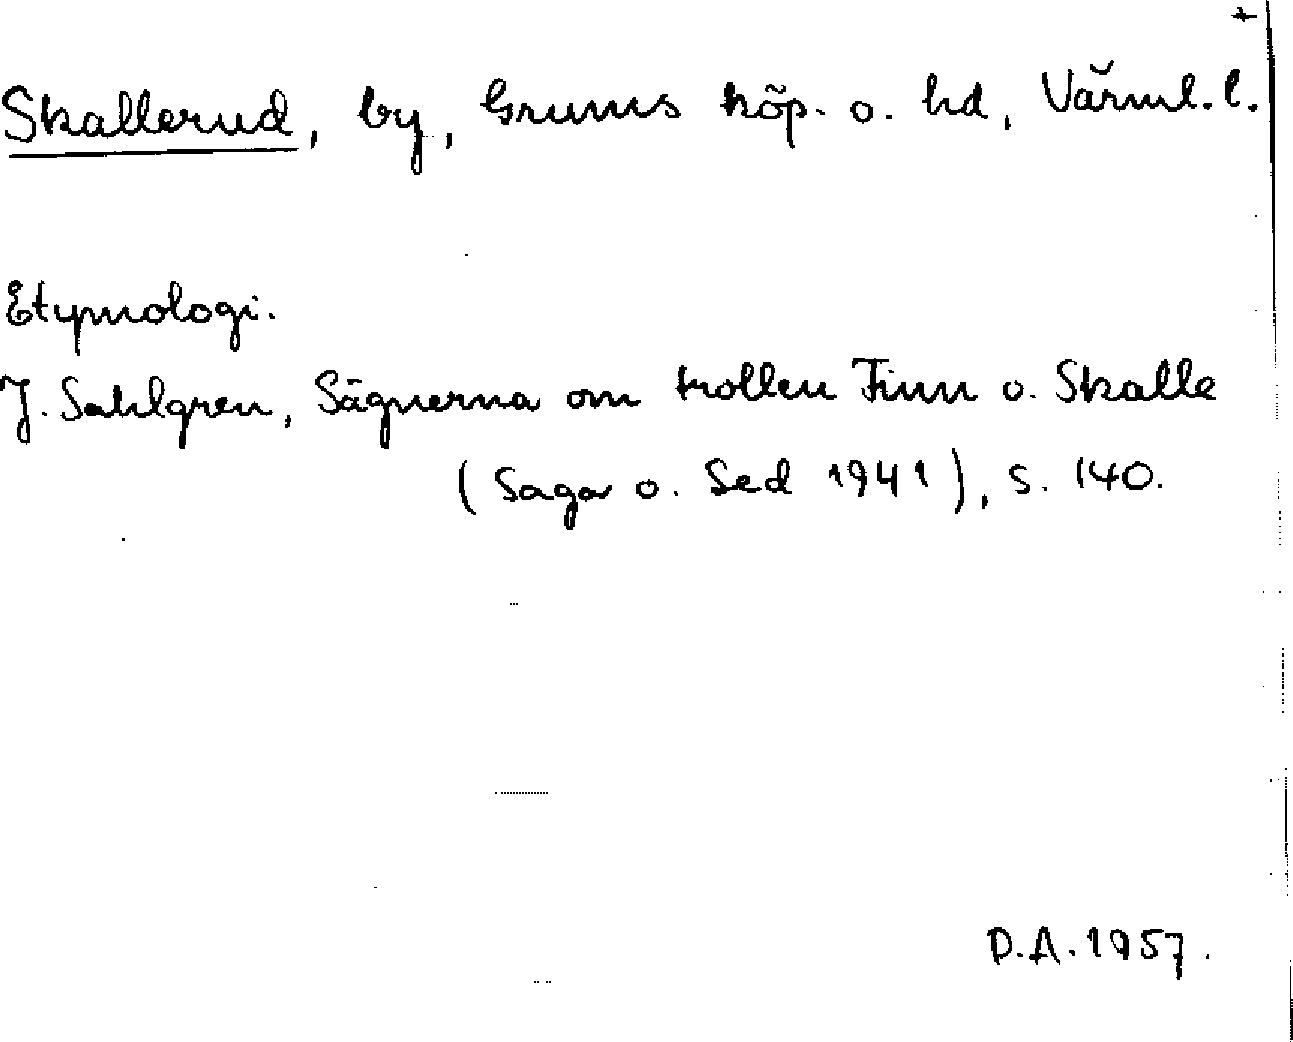 +
Skallerud, by, Grums köp. o. hd, Värml. l.
Etymologi.
J. Sahlgren, Sägnerna om trollen Finn o. Skalle
(Saga o. Sed 1941), s. 140.
D.A. 1957.